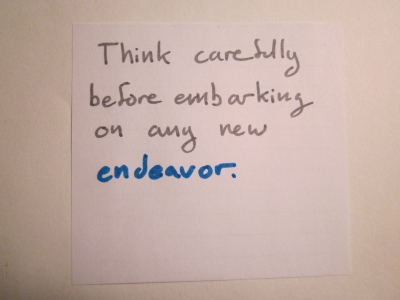 Think carefully
before embarking
on any new
endeavor.